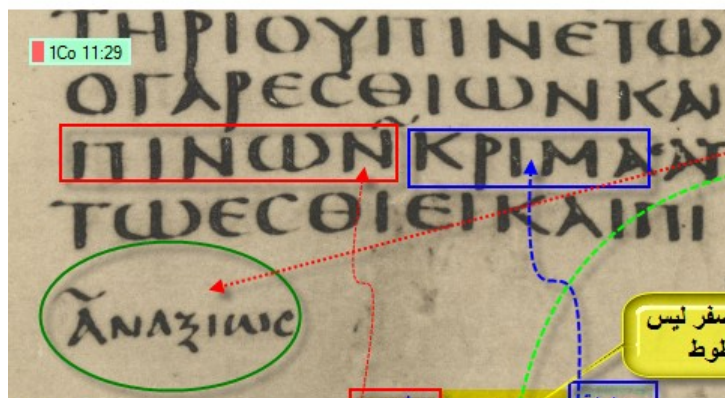 1Co 11:29
ΤΗΡΙΟΥΠΙΝΕΤΩ
ΟΓΑΡΕCΘΙΩΝΚΑΙ
ΠΙΝΩΝ ΚΡΙΜΑ
ΤΩΕCΘΙΕΙΚΑΙΠΙ
ΑΝΑΞΙΩC
سفر ليس
طوط